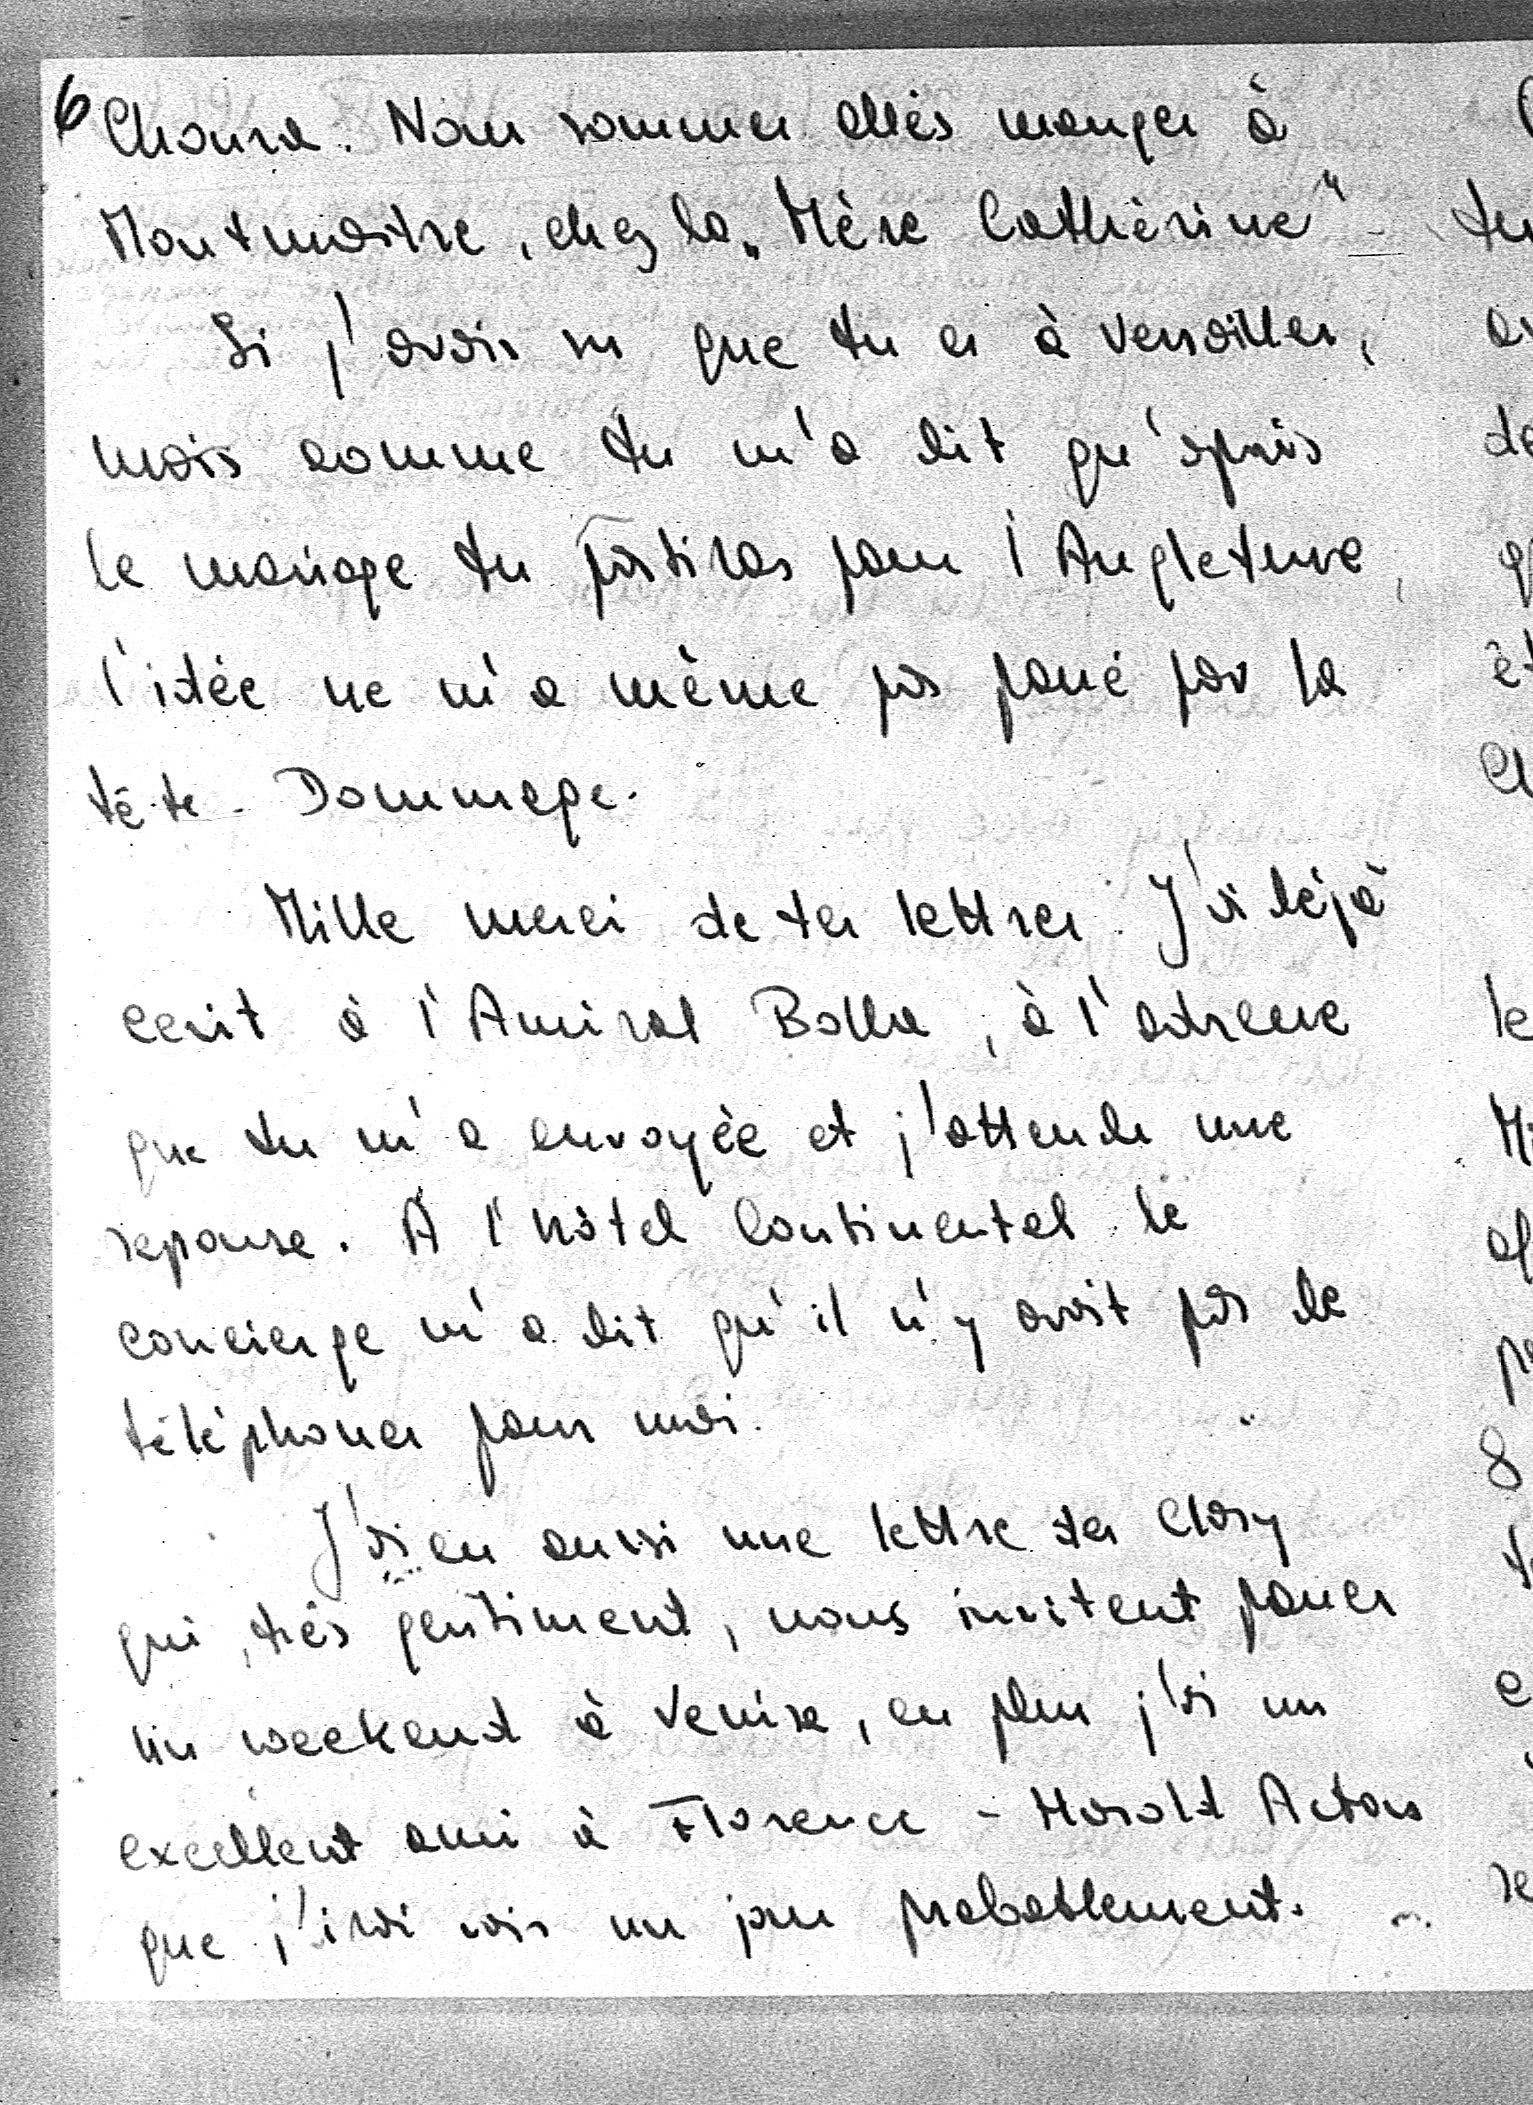 6 Choura. Nous sommes allés manger à
Montmartre, chez la „Mère Cathérine" -
Si j'avais su que tu es à Versailles,
mais comme tu m'a dit qu'après
le mariage tu partiras pour l'Angleterre,
l'idée ne m'a même pas passé par la
tête - Dommage.
Mille merci de tes lettres. J'ai déjà
ecrit à l'Amiral Bolla, à l'adresse
que tu m'a envoyée et j'attends une
reponse. A l'hôtel Continental le
concierge m'a dit qu'il n'y avait pas de
téléphones pour moi.
J'ai eu aussi une lettre des Clary
qui, très gentiment, nous invitent passer
un weekend à Venise, en plus j'ai un
excellent ami à Florence - Harold Acton
que j'irai voir un jour probablement.